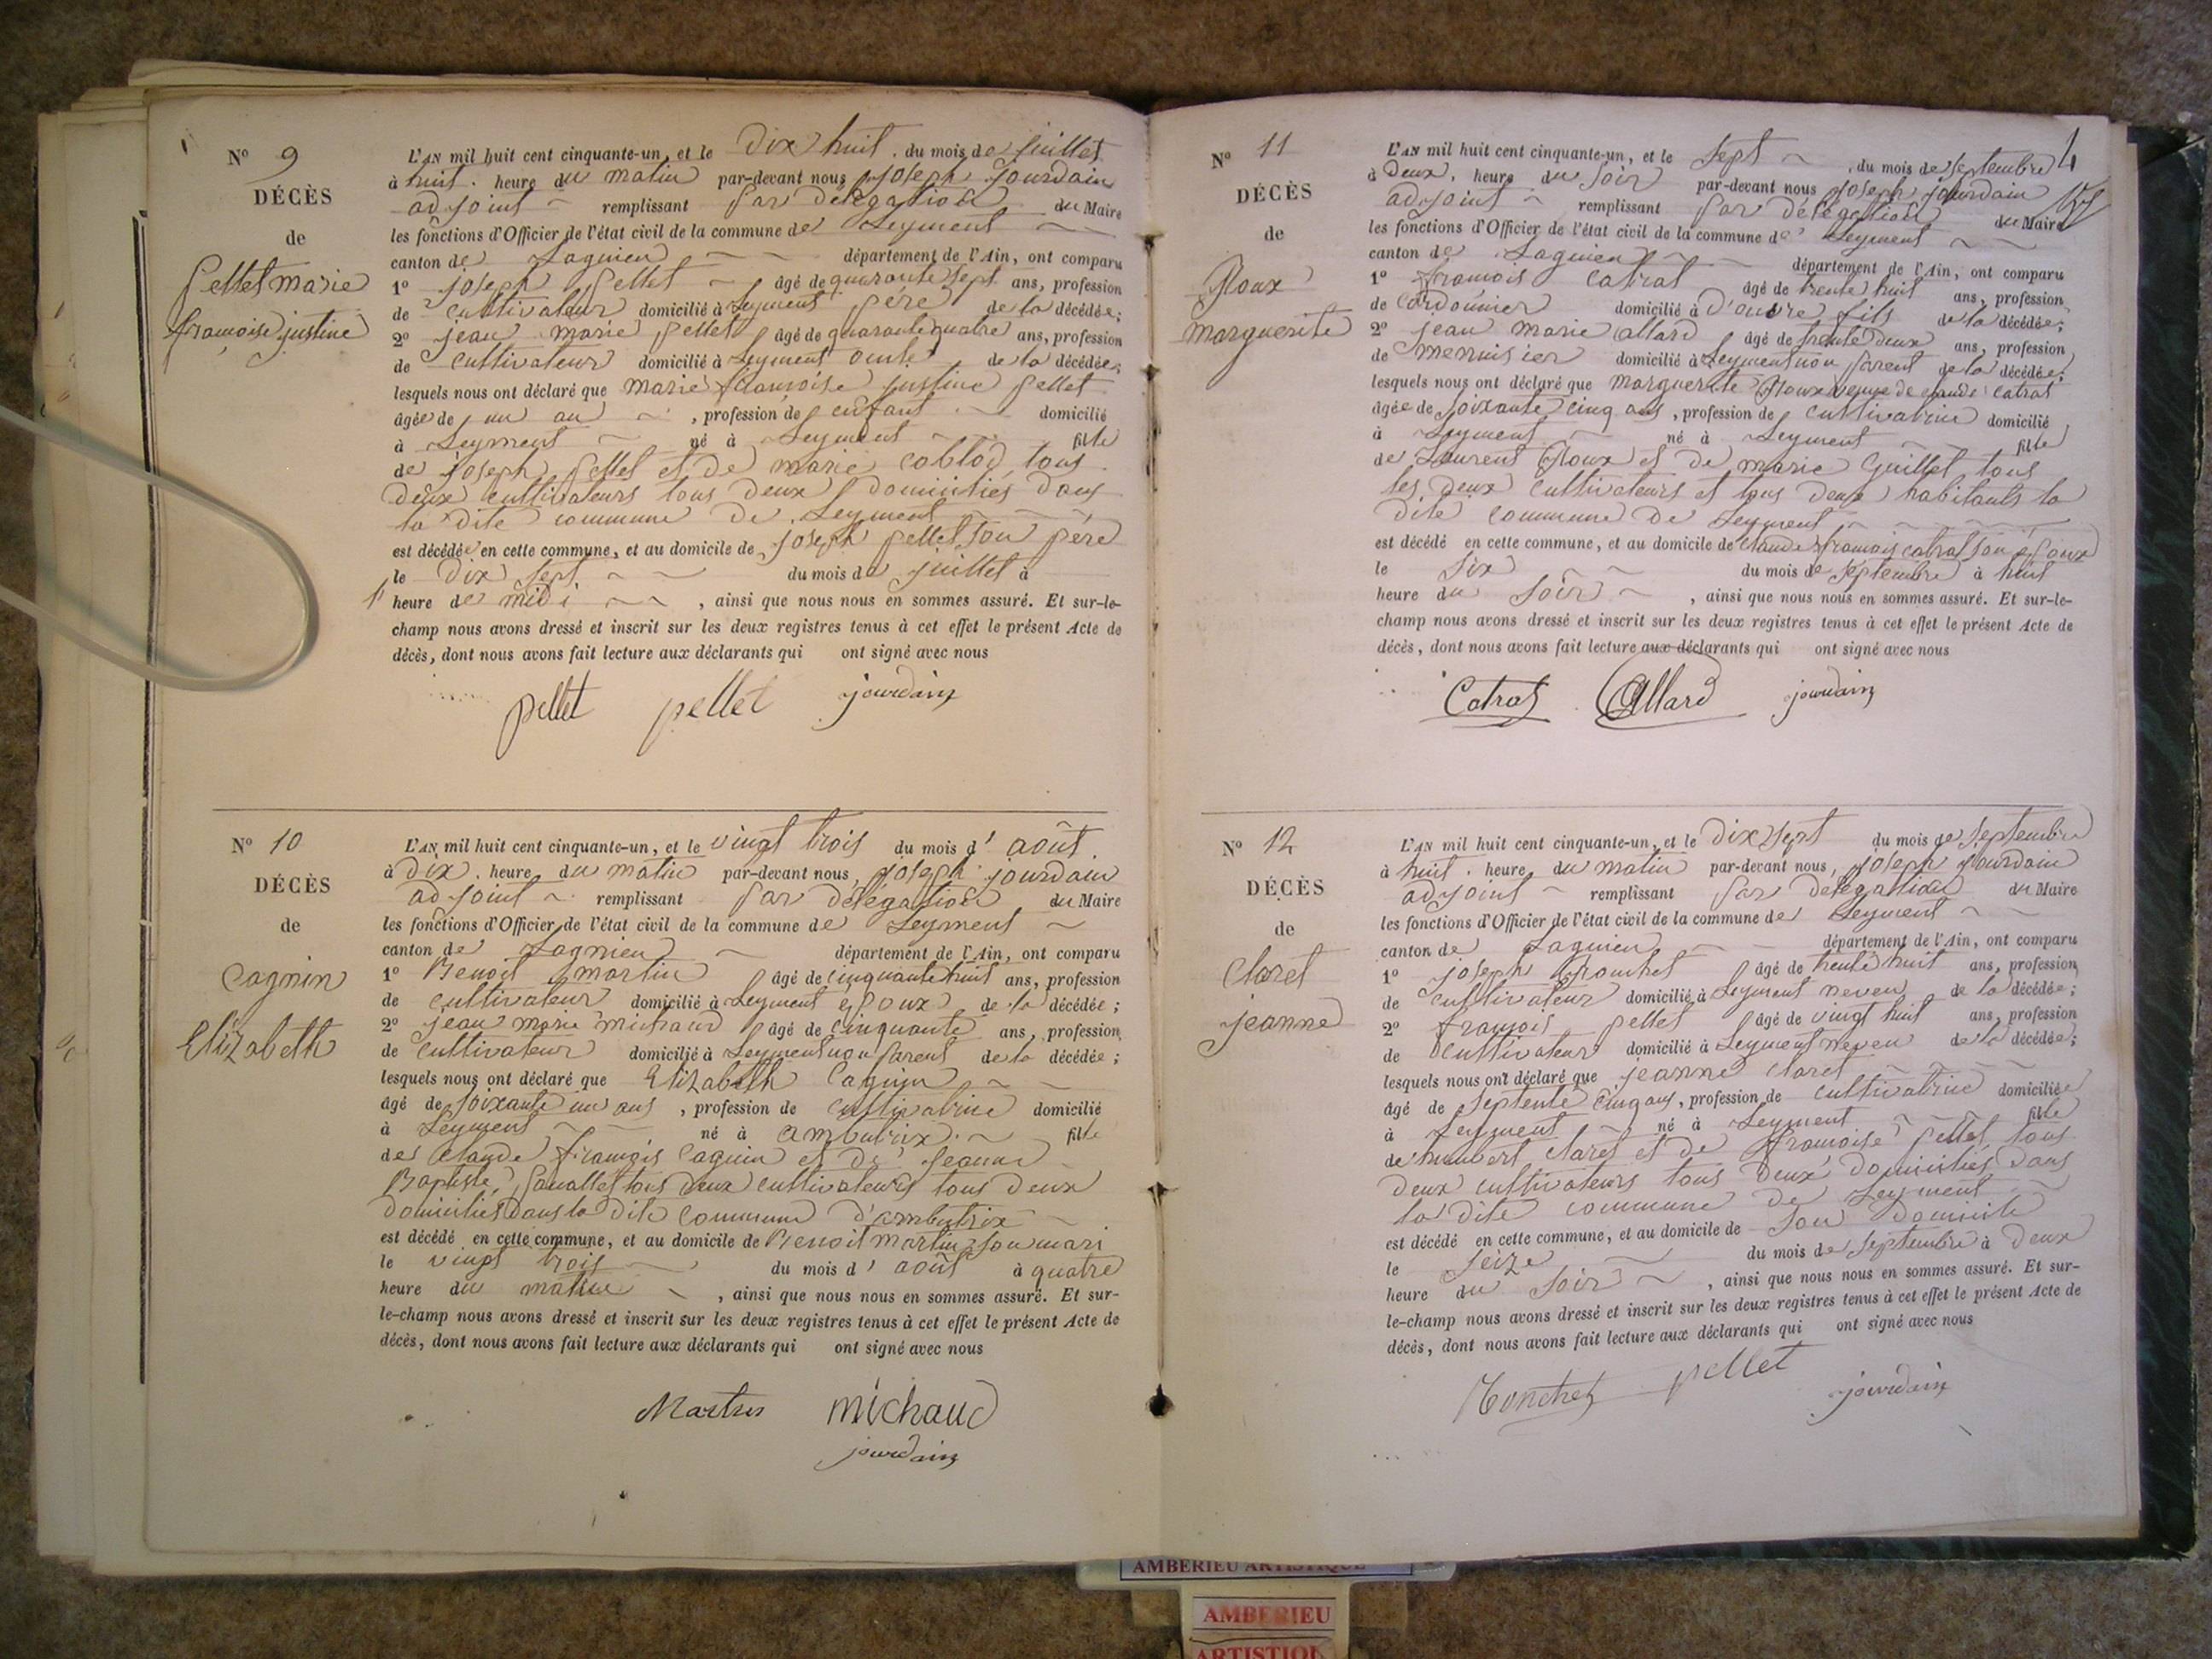 N° 9
DÉCÈS
de
Pellet marie
françoise justine
L'AN mil huit cent cinquante-un, et le Dix huit du mois de juillet
à huit heure du matin par-devant nous joseph jourdain
adjoint remplissant par délégation du Maire
les fonctions d'Officier de l'état civil de la commune de Leyment
canton de Lagnieu département de l'Ain, ont comparu
1° joseph pellet âgé de quarante sept ans, profession
de cultivateur domicilié à Leyment père de la décédée;
2° jean marie pellet âgé de quarante quatre ans, profession
de cultivateur domicilié à Leyment oncle de la décédée;
lesquels nous ont déclaré que marie françoise justine pellet
âgée de un an , profession de enfant domicilié
à Leyment né à Leyment fille
de joseph pellet et de marie coblod tous
deux cultivateurs tous deux domiciliés dans
la dite commune de Leyment
est décédée en cette commune, et au domicile de joseph pellet son père
le Dix sept du mois de juillet à
heure de midi , ainsi que nous nous en sommes assuré. Et sur-le-
champ nous avons dressé et inscrit sur les deux registres tenus à cet effet le présent Acte de
décès, dont nous avons fait lecture aux déclarants qui ont signé avec nous
pellet pellet jourdain
N° 10
DÉCÈS
de
Cagnin
Elizabeth
L'AN mil huit cent cinquante-un, et le vingt trois du mois d' août
à dix heure du matin par-devant nous, joseph jourdain
adjoint remplissant par délégation du Maire
les fonctions d'Officier de l'état civil de la commune de Leyment
canton de Lagnieu département de l'Ain, ont comparu
1° Benoit martin âgé de cinquante huit ans, profession
de cultivateur domicilié à Leyment epoux de la décédée;
2° jean marie michaud âgé de cinquante ans, profession
de cultivateur domicilié à Leyment non parent de la décédée;
lesquels nous ont déclaré que Elizabeth Cagnin
âgé de soixante un ans , profession de cultivatrice domicilié
à Leyment né à ambutrix fille
de Claude françois Cagnin et de jeanne
Baptiste tous deux cultivateurs tous deux
domiciliés dans la dite commune d'ambutrix
est décédé en cette commune, et au domicile de Benoit martin son mari
le vingt trois du mois d' août à quatre
heure du matin , ainsi que nous nous en sommes assuré. Et sur-
le-champ nous avons dressé et inscrit sur les deux registres tenus à cet effet le présent Acte de
décès, dont nous avons fait lecture aux déclarants qui ont signé avec nous
michaud
jourdain
4
N° 11
DÉCÈS
de
Roux
marguerite
L'AN mil huit cent cinquante-un, et le sept du mois de septembre
à Deux heure du soir par-devant nous joseph jourdain
adjoint remplissant par délégation du Maire
les fonctions d'Officier de l'état civil de la commune de Leyment
canton de Lagnieu département de l'Ain, ont comparu
1° françois catrat âgé de trente huit ans, profession
de cordonnier domicilié à fils de la décédée;
2° jean marie allard âgé de trente deux ans, profession
de menuisier domicilié à Leyment non parent de la décédée;
lesquels nous ont déclaré que marguerite Roux veuve de claude catrat
âgée de soixante cinq ans , profession de cultivatrice domicilié
à Leyment né à Leyment fille
de Laurent Roux et de marie Guillet tous
les deux cultivateurs et tous deux habitants la
dite commune de Leyment
est décédé en cette commune, et au domicile de claude françois catrat son epoux
le six du mois de septembre à huit
heure du soir , ainsi que nous nous en sommes assuré. Et sur-le-
champ nous avons dressé et inscrit sur les deux registres tenus à cet effet le présent Acte de
décès, dont nous avons fait lecture aux déclarants qui ont signé avec nous
Catrat Allard jourdain
N° 12
DÉCÈS
de
Claret
jeanne
L'AN mil huit cent cinquante-un, et le Dix sept du mois de septembre
à huit heure du matin par-devant nous, joseph jourdain
adjoint remplissant par délégation du Maire
les fonctions d'Officier de l'état civil de la commune de Leyment
canton de Lagnieu département de l'Ain, ont comparu
1° joseph âgé de trente huit ans, profession
de cultivateur domicilié à Leyment neveu de la décédée;
2° françois pellet âgé de vingt huit ans, profession
de cultivateur domicilié à Leyment neveu de la décédée;
lesquels nous ont déclaré que jeanne claret
âgé de septente cinq ans, profession de cultivatrice domiciliée
à Leyment né à Leyment fille
de humbert claret et de françoise pellet tous
deux cultivateurs tous deux domiciliés dans
la dite commune de Leyment
est décédé en cette commune, et au domicile de son domicile
le seize du mois de septembre à deux
heure du soir , ainsi que nous nous en sommes assuré. Et sur-
le-champ nous avons dressé et inscrit sur les deux registres tenus à cet effet le présent Acte de
décès, dont nous avons fait lecture aux déclarants qui ont signé avec nous
pellet
jourdain
AMBERIEU ARTISTIQUE
AMBERIEU